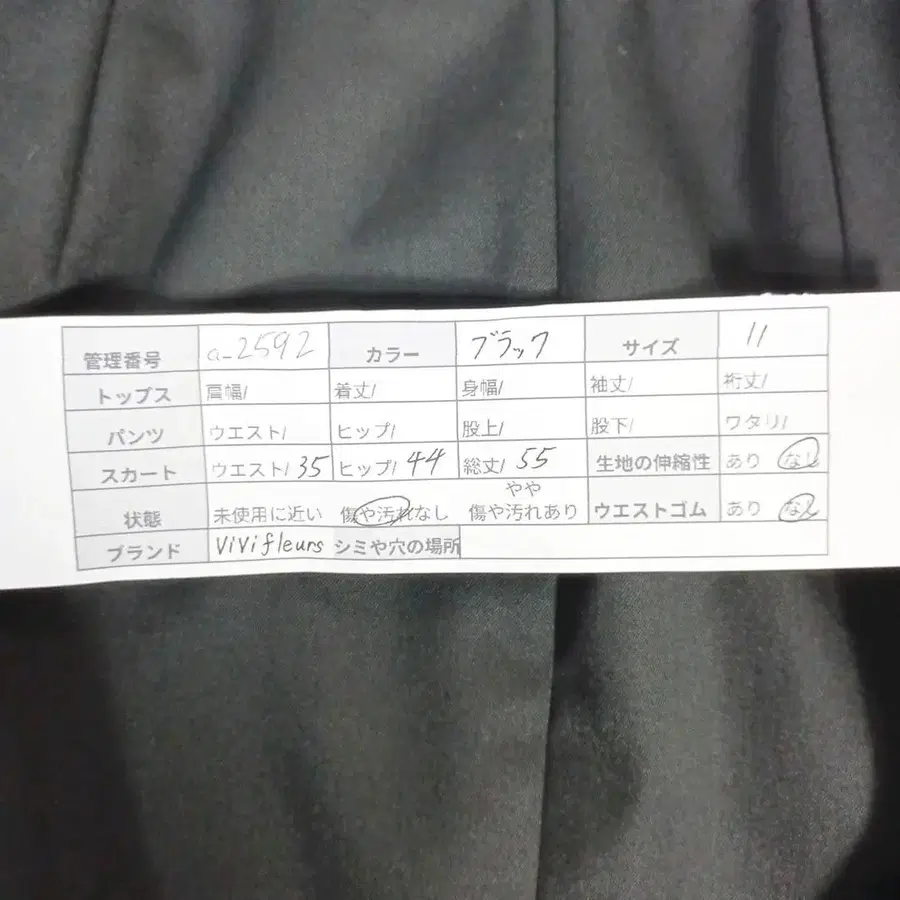 管理番号 a-2592 カラー ブラック サイズ 11
トップス 肩幅/ 着丈/ 身幅/ 袖丈/ 裄丈/
パンツ ウエスト/ ヒップ/ 股上/ 股下/ ワタリ/
スカート ウエスト/ 35 ヒップ/ 44 総丈/ 55 生地の伸縮性 あり なし
状態 未使用に近い 傷や汚れなし やや傷や汚れあり ウエストゴム あり なし
ブランド ViVifleurs シミや穴の場所